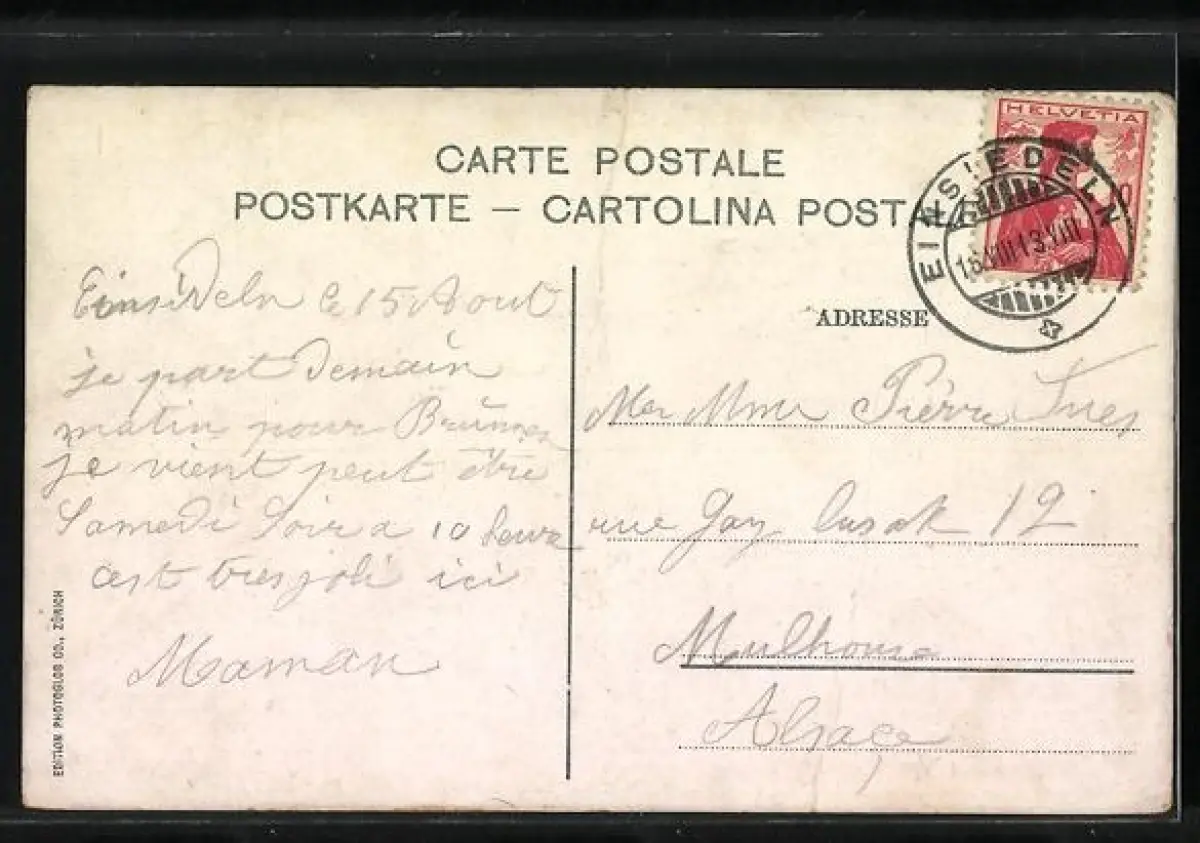 CARTE POSTALE
POSTKARTE – CARTOLINA POST
HELVETIA
EINSIEDELN
ADRESSE
Einsideln le 15 Aout
je part Demain
matin pour Brunnen
je vient peut être
Samedi Soir a 10 heure
cest tres joli ici
Maman
Mme Pierre
rue Gay lusak 12
Mulhouse
Alsace
EDITION PHOTOGLOB CO., ZÜRICH